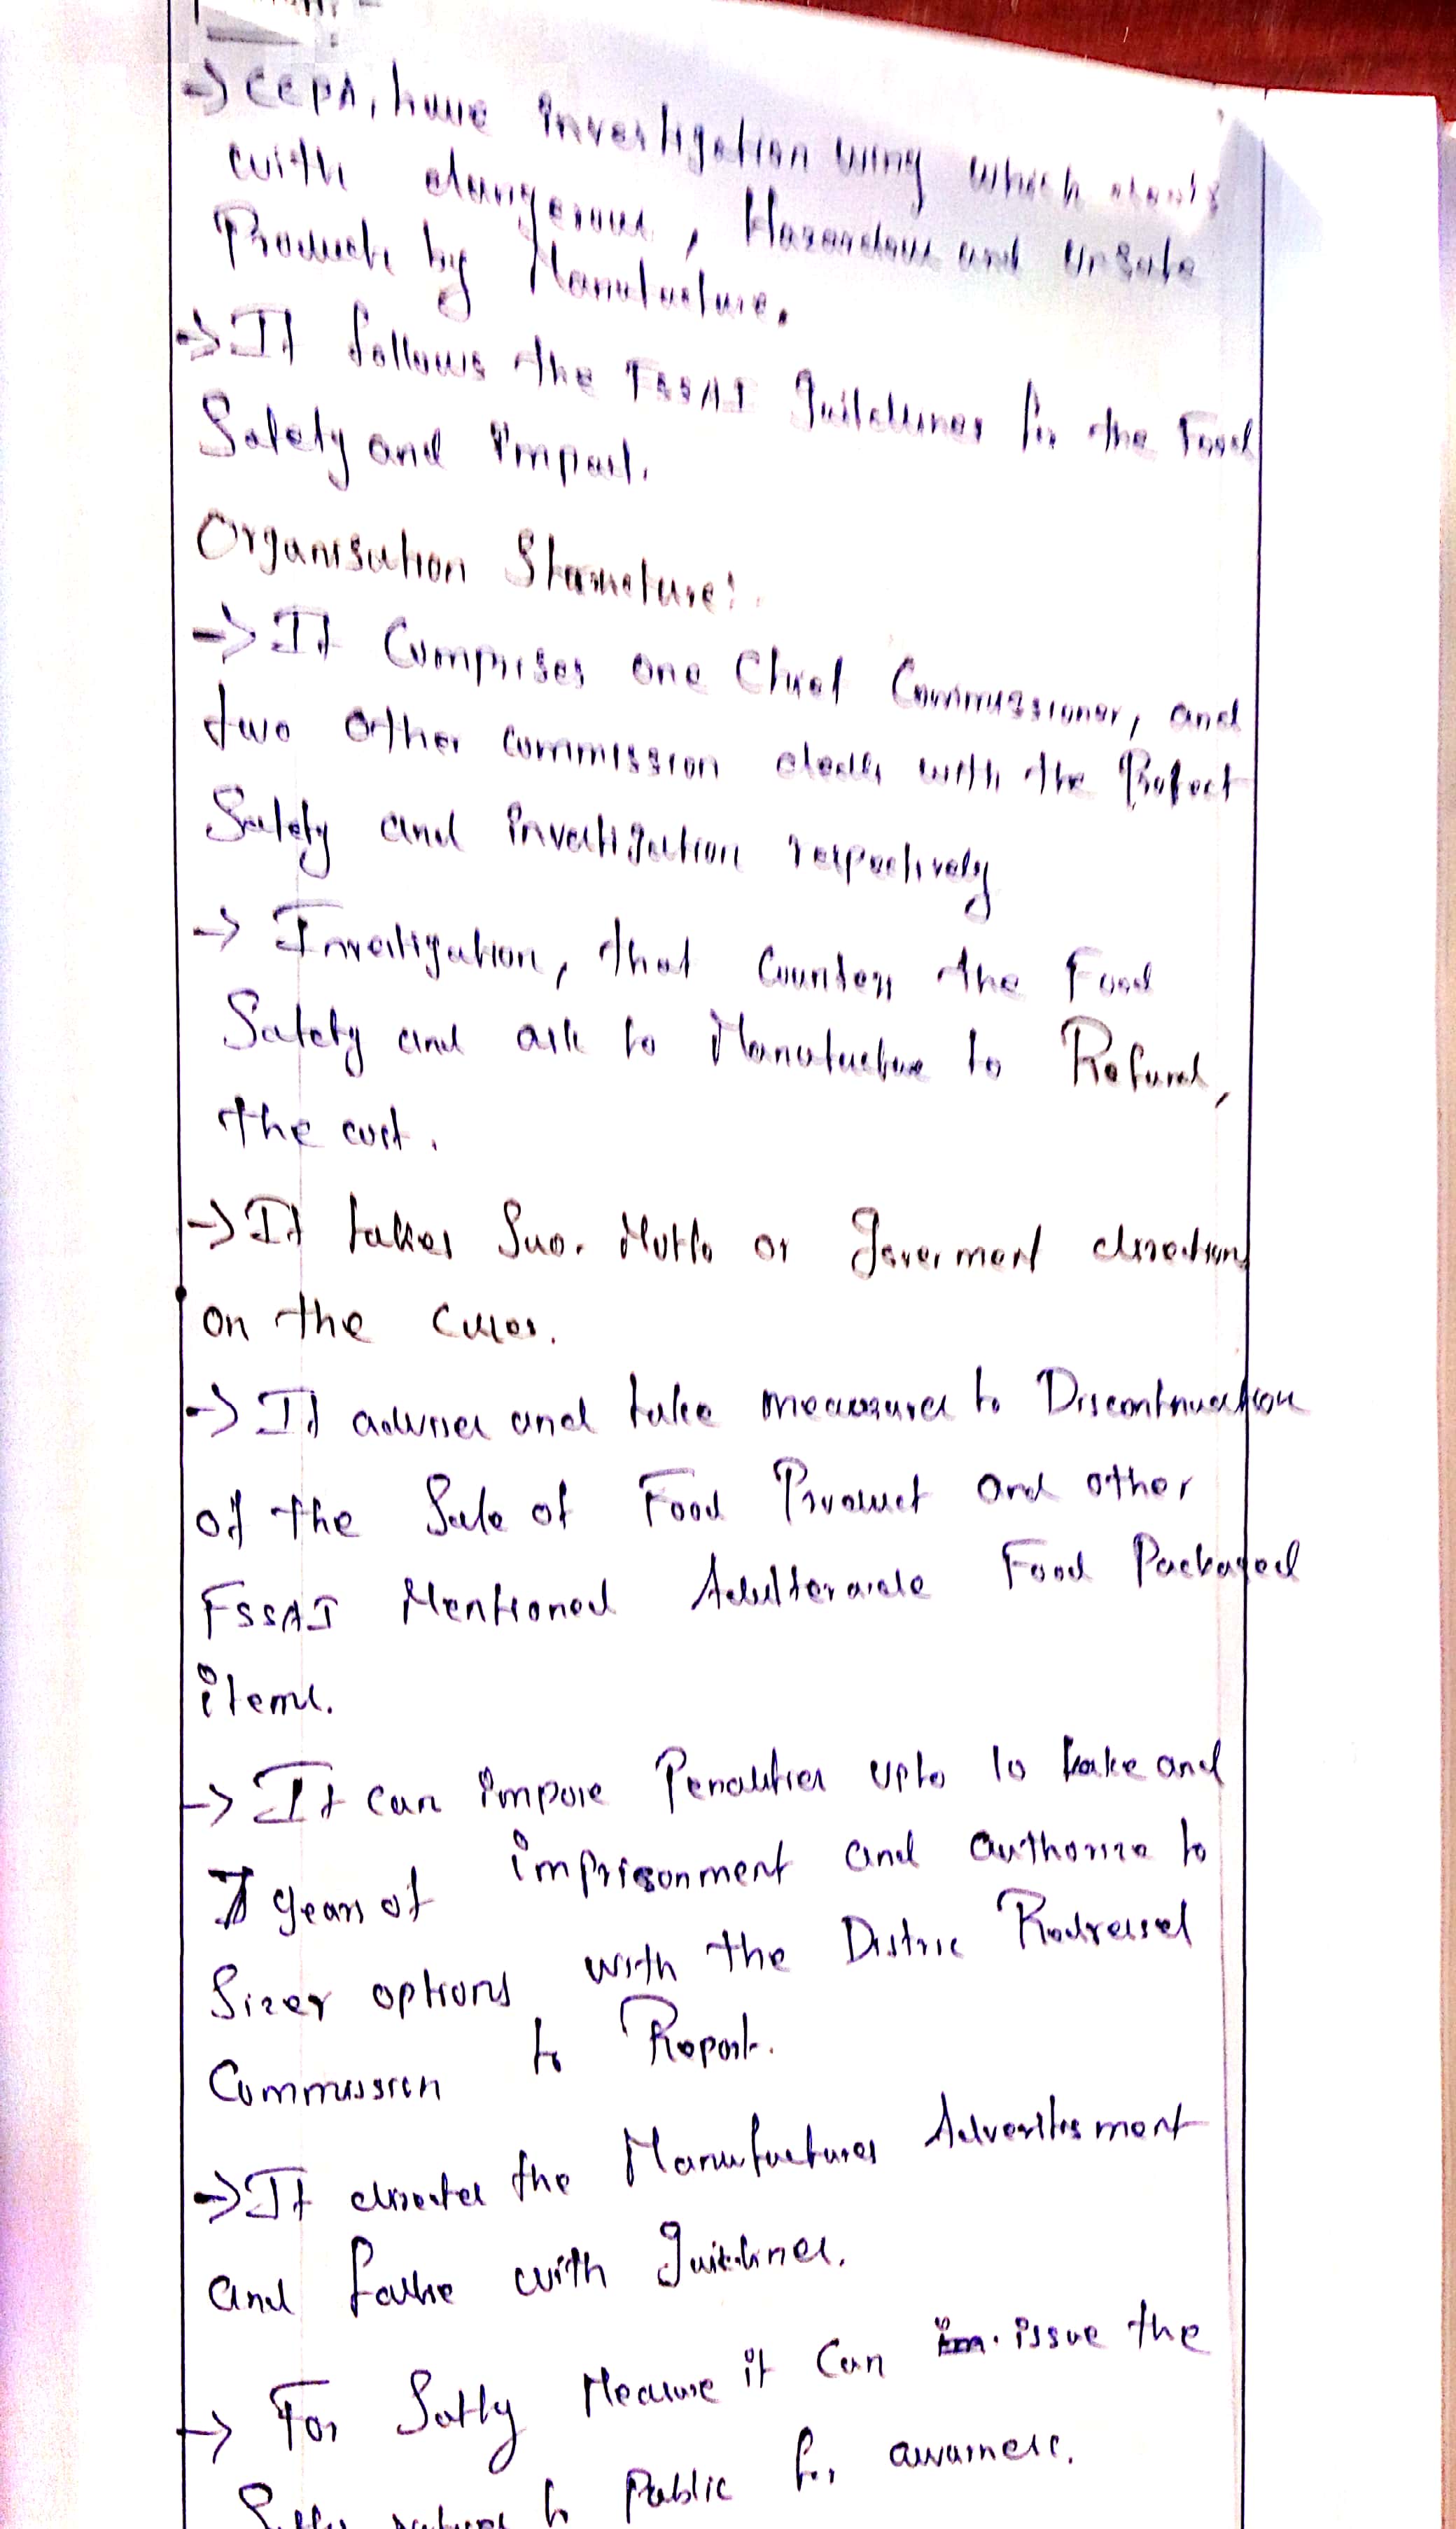 -> CCPA, have investigation wing which deals
with dangerous, Hazardous and unsafe
Products by Manufacture.
-> It follows the FSSAI guildelines for the Food
Safety and impact.
Organisation Structure:
-> It Comprises one Chief Commissioner, and
two other commission deals with the
Safety and investigation respectively
-> Investigation, that Counters the Food
Safety and ask to Manufacture to Refund,
the cost.
-> It takes Suo. Motto or Goverment direction
on the cases.
-> It advises and take measures to Discontinuation
of the Sale of Food Product and other
FSSAI Mentioned Food Packaged
items.
-> It can impose Penalities upto 10 and
years of imprisonment and authorize to
Sizer options with the Distric Redressel
Commission to Report.
-> It directes the Manufactures Advertisment
and with guidelines.
-> For Safty Measure it can issue the
to Public for awarness.